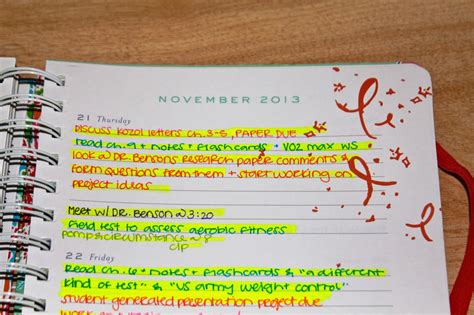 NOVEMBER 2013
21 Thursday
DISCUSS KOZOL letters ch. 3-5, PAPER DUE
Read ch. 9 + notes + flashcards + VO2 max WS
LOOK @ DR. BENSONS RESEARCH paper comments &
form questions from them + start working on
project ideas
Meet w/ DR. Benson @ 3:20
field test to assess aerobic fitness
pomp & circumstance @ 8
CLP
22 Friday
Read ch. 6 + notes + flashcards & "a different
kind of test" & "US army weight control"
student generated presentation project due